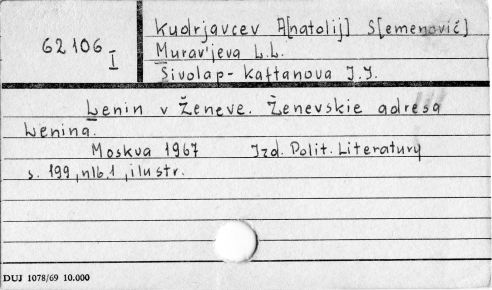 Kudrjavcev A[natolij] S[emenovič]
62106
I
Murav'jeva L.L.
Sivolap-Kaftanova I.I.
Lenin v Ženeve. Ženevskie adresa
Lenina.
Moskva 1967 Izd. Polit. Literatury
s. 199, nlb. 1, ilustr.
DUJ 1078/69 10.000